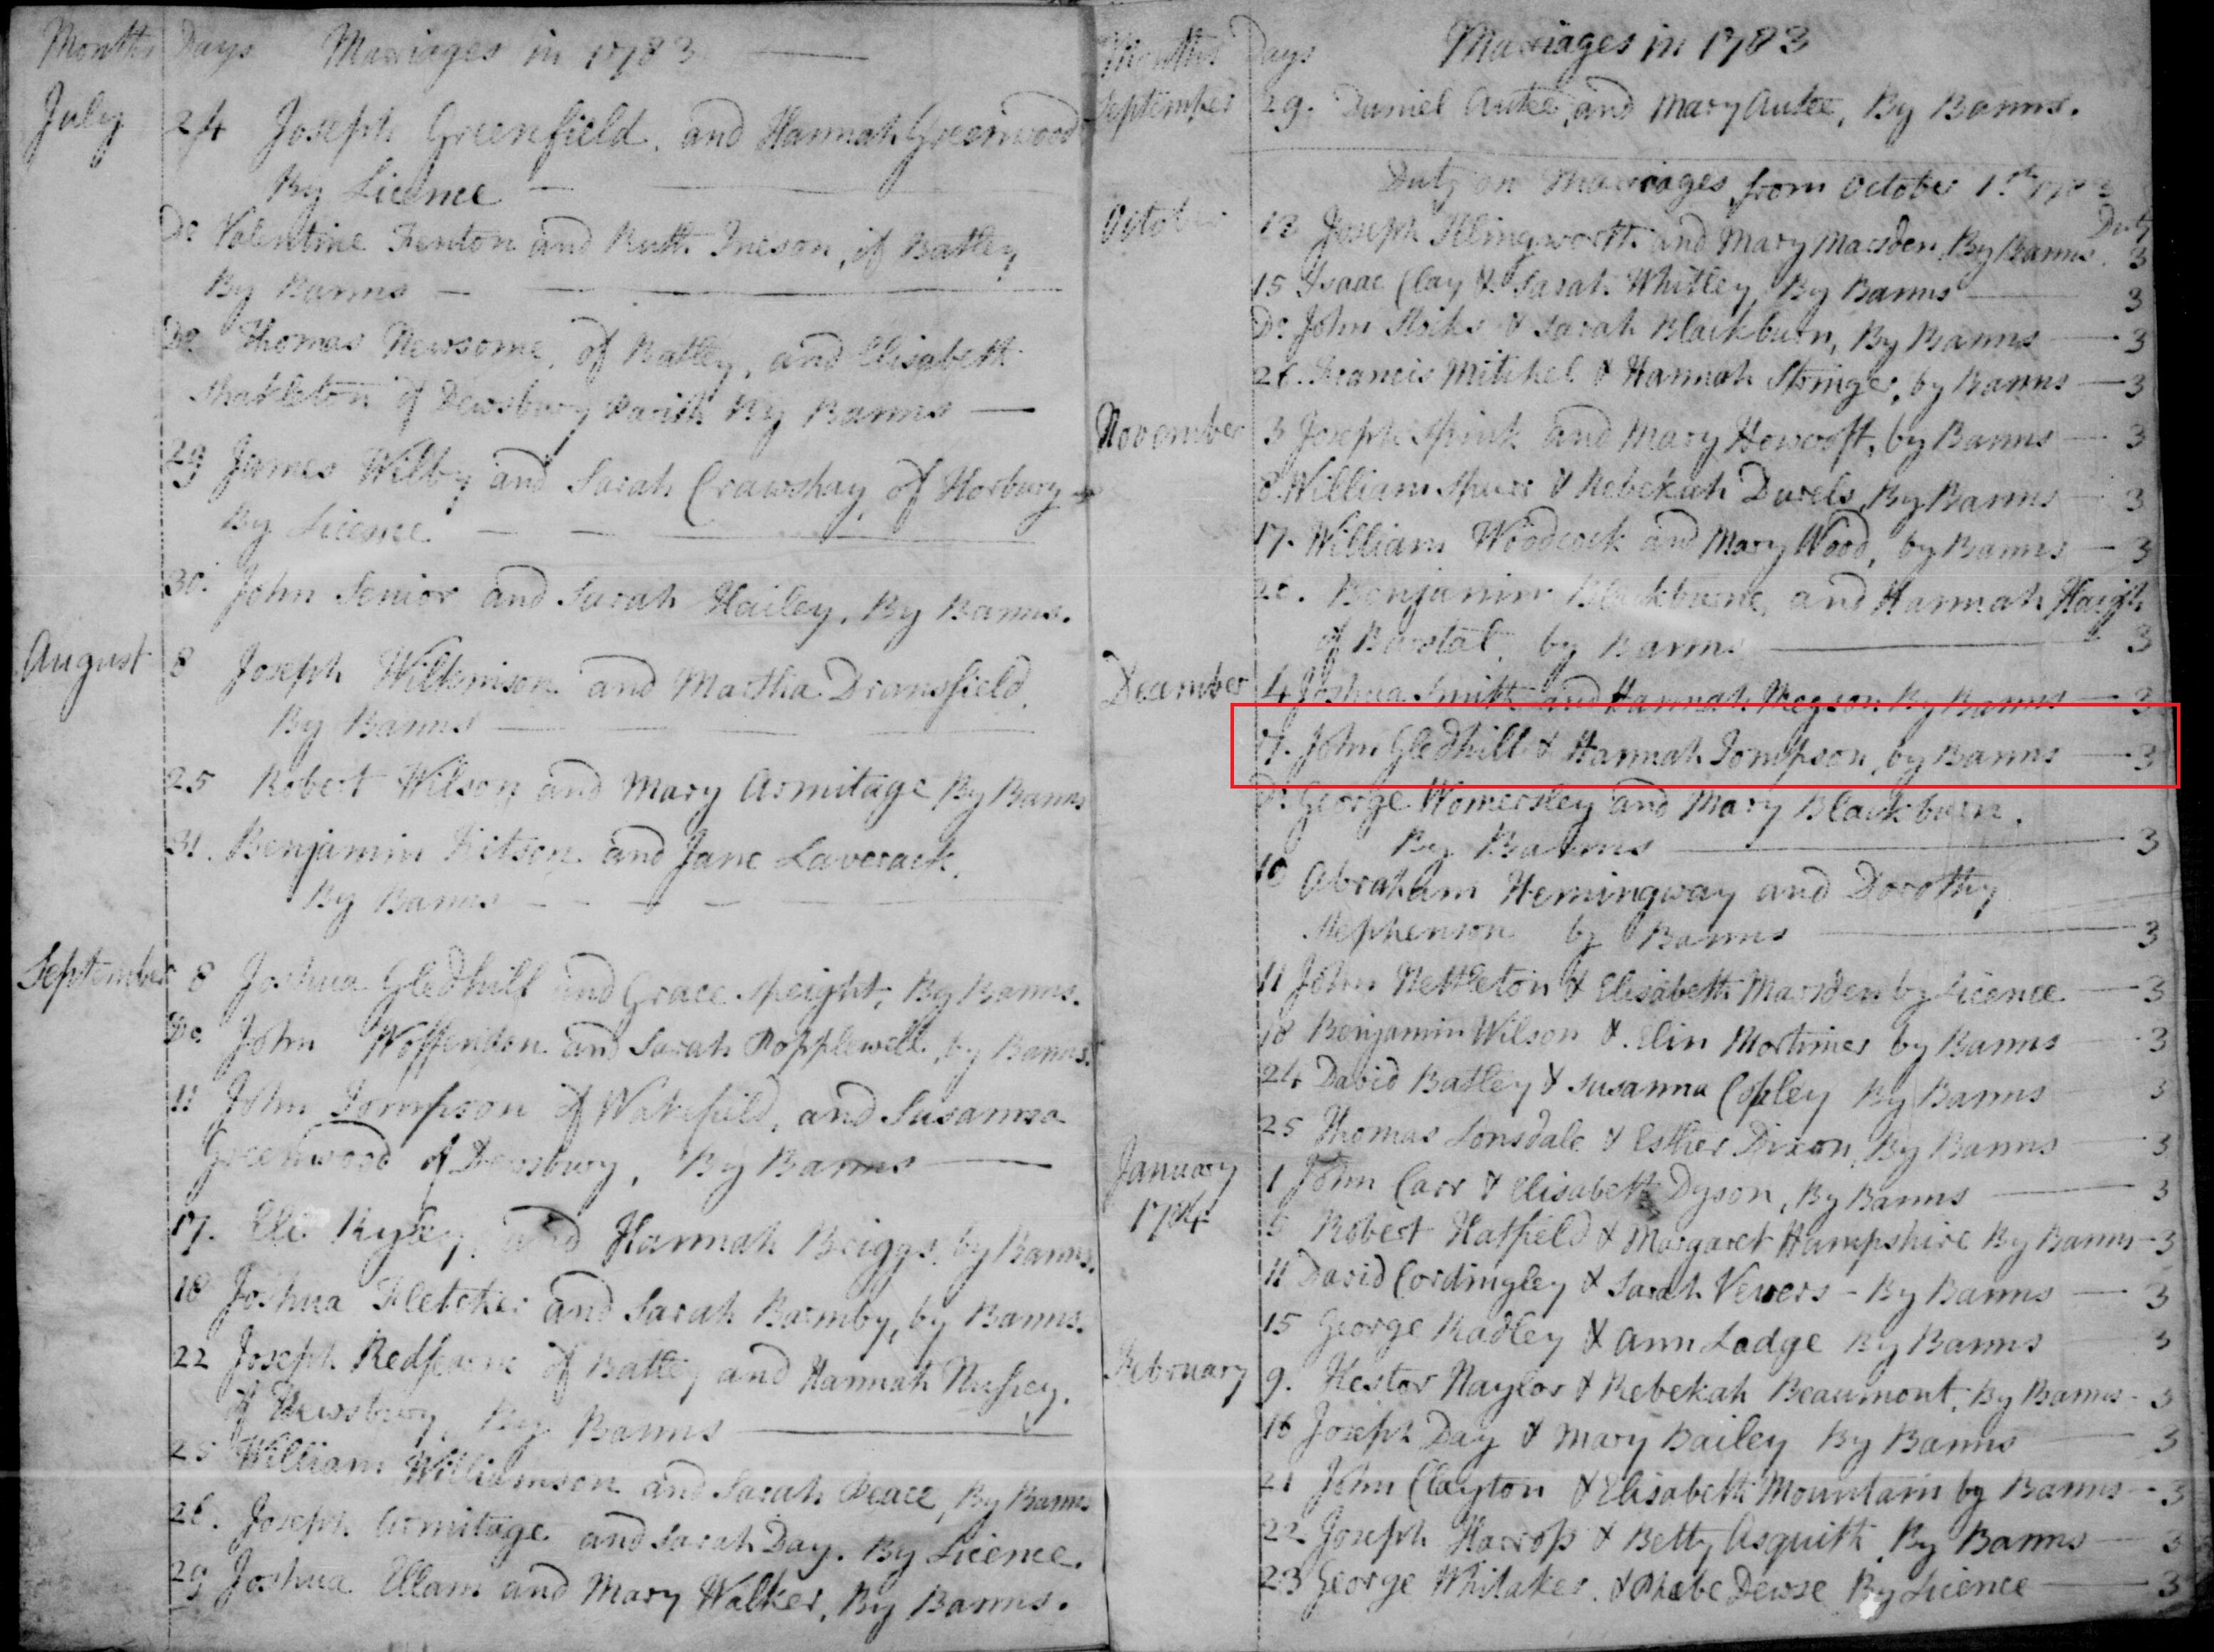 Months Days Marriages in 1783
July 24 Joseph Greenfield, and Hannah Greenwood
By Licence
Do Valentine Fenton and Ruth Ineson, of Batley,
By Banns
Do Thomas Newsome, of Batley, and Elisabeth
Shackleton of Dewsbury Parish By Banns
29 James Wilby and Sarah Crawshay, of Horbury
By Licence
30. John Senior and Sarah Hailey, By Banns.
August 8 Joseph Wilkinson and Martha Dransfield.
By Banns
25 Robert Wilson and Mary Armitage By Banns
31. Benjamin Kitson and Jane Laverack.
By Banns
September 8 Joshua Gledhill and Grace Speight, By Banns.
Do John Woffendon and Sarah Popplewell, by Banns.
11 John Tompson of Wakefield, and Susanna
Greenwood of Dewsbury, By Banns
17. Eli Ryley and Hannah Briggs, by Banns.
18 Joshua Fletcher and Sarah Barmby, by Banns.
22 Joseph Redfearne of Batley and Hannah Nussey.
of Dewsbury, By Banns
25 William Williamson and Sarah Peace, By Banns
28. Joseph Armitage and Sarah Day. By Licence.
29 Joshua Ellam and Mary Walker, By Banns.
Months Days Marriages in 1783
September 29. Daniel Autee, and Mary Autee, By Banns.
Duty on Marriages from October 1st 1783
Duty
October Joseph Illingworth and Mary Marsden By Banns. 3
15 Isaac Clay & Sarah Whitley, By Banns 3
Do John Stocks & Sarah Blackburn, By Banns 3
Francis Mitchel & Hannah Stringer, by Banns 3
November 3 Joseph Spink and Mary Howcroft, by Banns 3
8 William & Rebekah By Banns 3
17. William Woodcock and Mary Wood, by Banns 3
Benjamin Blackburne, and Hannah Haigh
of Burstal, by Banns 3
December 4 Joshua Smith and Hannah Megson By Banns 3
7. John Gledhill & Hannah Tompson, by Banns 3
Do George Womersley and Mary Blackburn.
By Banns 3
10 Abraham Hemingway and Dorothy
Stephenson by Banns 3
11 John Nettleton & Elisabeth Marsden by Licence 3
18 Benjamin Wilson & Elin Mortimer by Banns 3
24 David Batley & Susanna Copley By Banns 3
25 Thomas Lonsdale & Esther Dixon, By Banns 3
January 1 John Carr & Elisabeth Dyson, By Banns 3
1784 5 Robert Hatfield & Margaret Hampshire By Banns 3
11 David Cordingley & Sarah Vevers - By Banns 3
15 George Radley & Ann Lodge By Banns 3
February 9. Hestor Naylor & Rebekah Beaumont, By Banns 3
16 Joseph Day & Mary Bailey By Banns 3
21 John Clayton & Elisabeth Mountain by Banns 3
22 Joseph Harrop & Betty Asquith By Banns 3
23 George Whitaker & Phebe Dewse By Licence 3